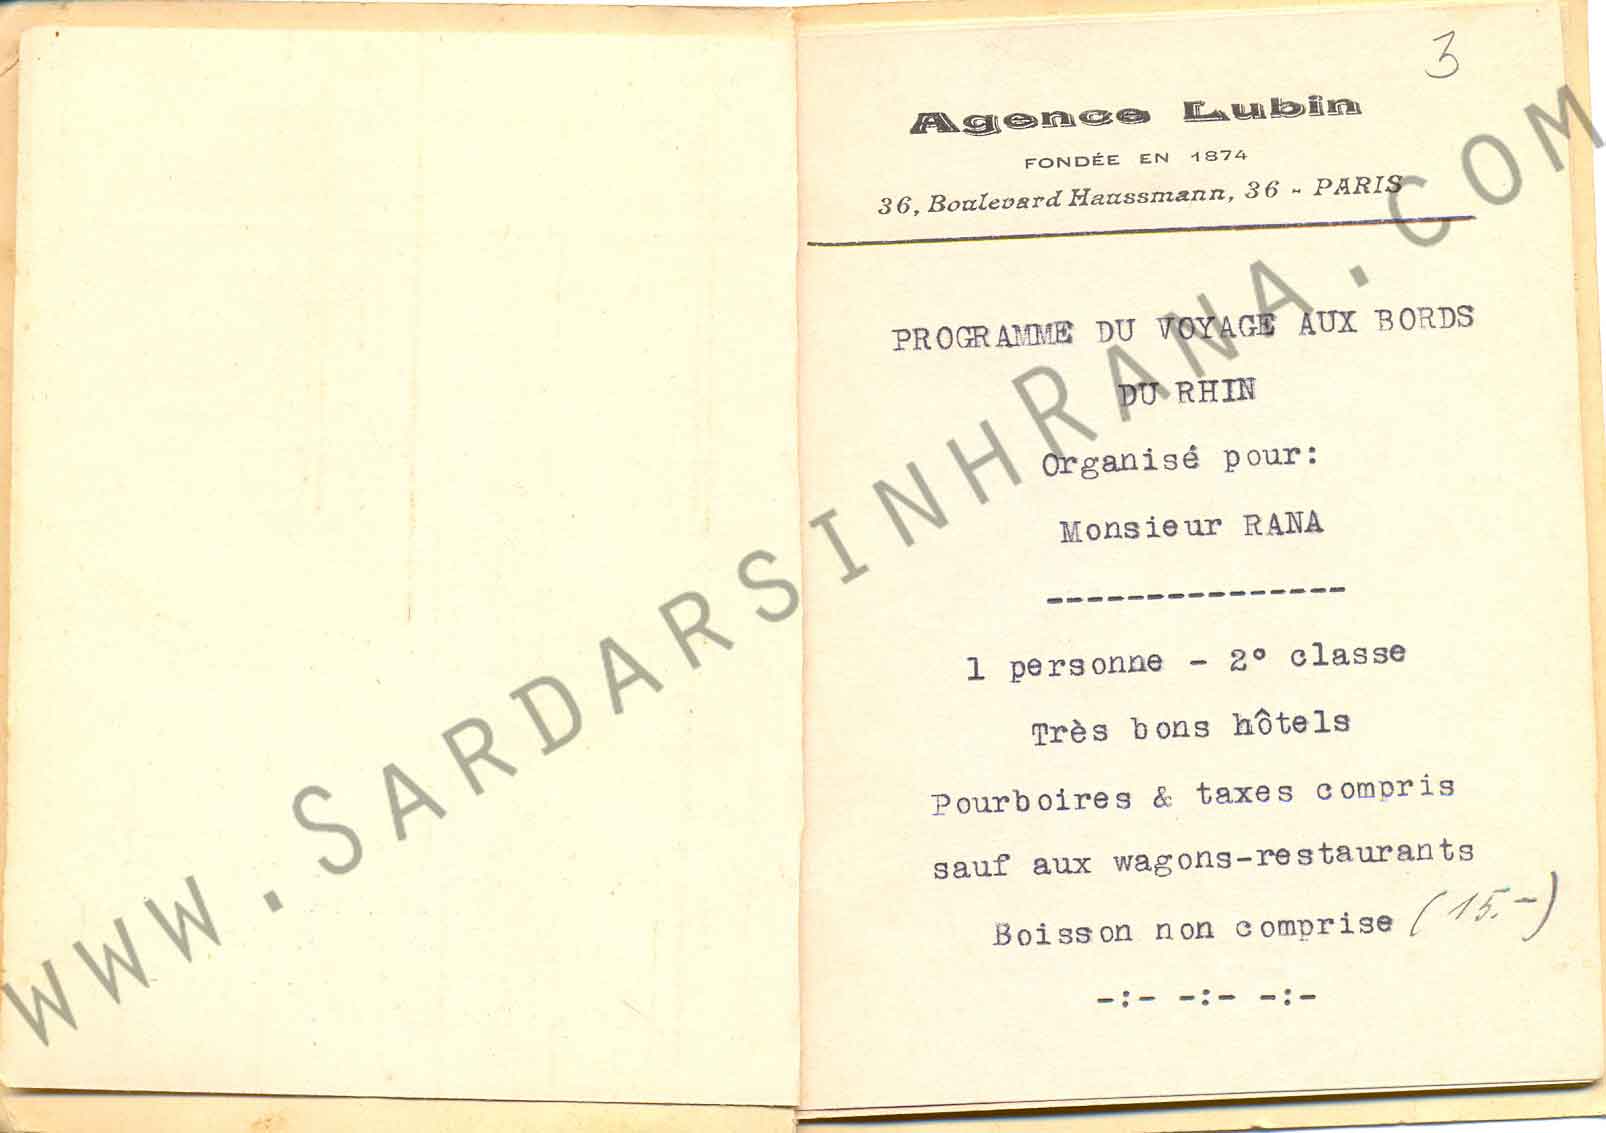 3
Agence Lubin
FONDÉE EN 1874
36, Boulevard Haussmann, 36 - PARIS
PROGRAMME DU VOYAGE AUX BORDS
DU RHIN
Organisé pour:
Monsieur RANA
---------------
1 personne - 2° classe
Très bons hôtels
Pourboires & taxes compris
sauf aux wagons-restaurants
Boisson non comprise (15.-)
-:- -:- -:-
www.SardarsinhRana.com